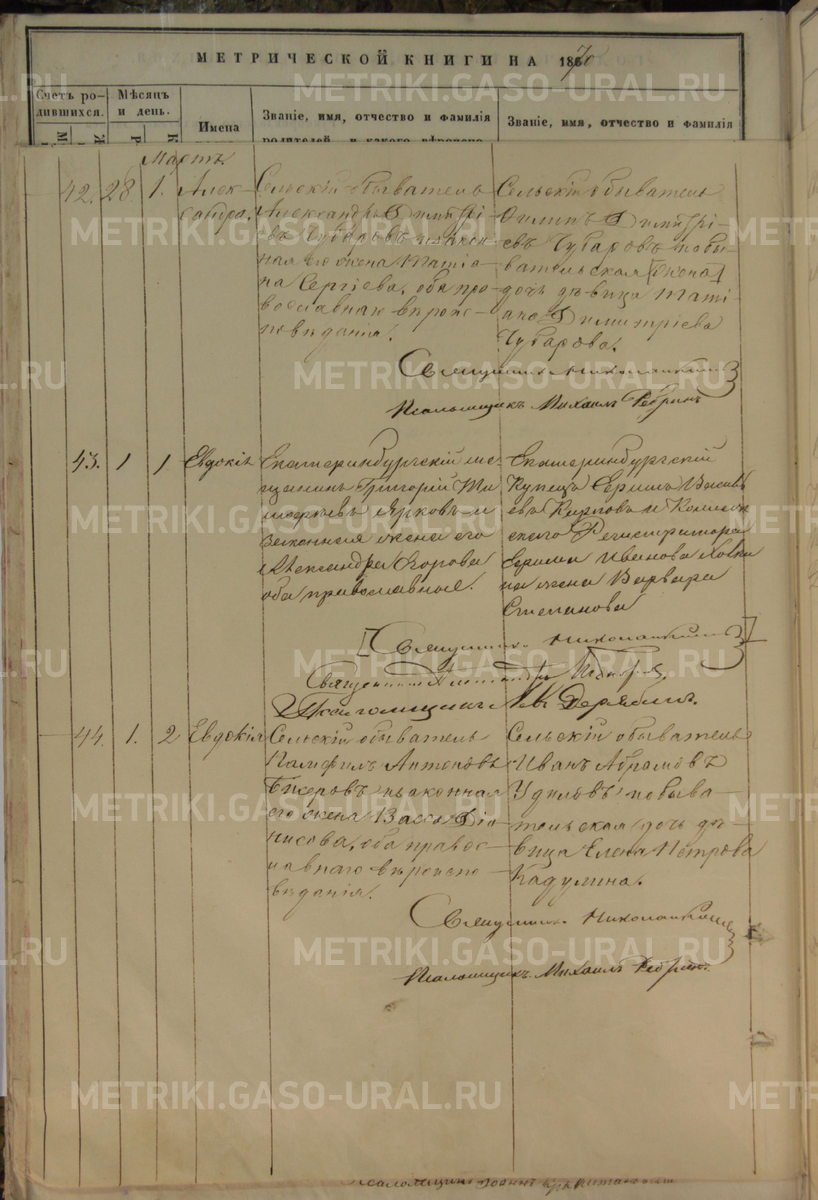 МЕТРИЧЕСКОЙ КНИГИ НА 1870
Счетъ ро-
дившихся.
Мѣсяцъ
и день.
Имена
Званіе, имя, отчество и фамилія
Званіе, имя, отчество и фамилія
Мартъ
42. 28. 1. Алек-
сандра.
Сельскій обыватель
Александръ Димитрі-
евъ Чубаровъ и закон-
ная его жена Татіа-
на Сергіева, оба пра-
вославнаго вѣроис-
повѣданія.
Сельскій обыватель
Филипъ Димитрі-
евъ Чубаровъ и обы-
вательская [жена]
дочь дѣвица Таті-
ана Димитріева
Чубарова.
Священникъ
Псаломщикъ Михаилъ Ребринъ
43. 1 1 Евдокія
Екатеринбургскій мѣ-
щанинъ Григорій Ти-
мофеевъ Ярковъ и
законная жена его
Александра Егорова
оба православные.
Екатеринбургскій
Купецъ Ефимъ Василь
евъ Карповъ и Коллеж
скаго Регистратора
Ефима Иванова
жена Варвара
Степанова
Священникъ
Священникъ Александръ
Псаломщикъ Дерябинъ.
44. 1. 2 Евдокія
Сельскій обыватель
Памфилъ Антоновъ
Бисеровъ и законная
его жена Васса Діо-
нисова, оба правос-
лавнаго вѣроиспо-
вѣданія.
Сельскій обыватель
Иванъ Абрамовъ
Удиловъ и обыва-
тельская дочь дѣ-
вица Елена Петрова
Кадулина.
Священникъ
Псаломщикъ Михаилъ Ребринъ.
Псаломщикъ
METRIKI.GASO-URAL.RU